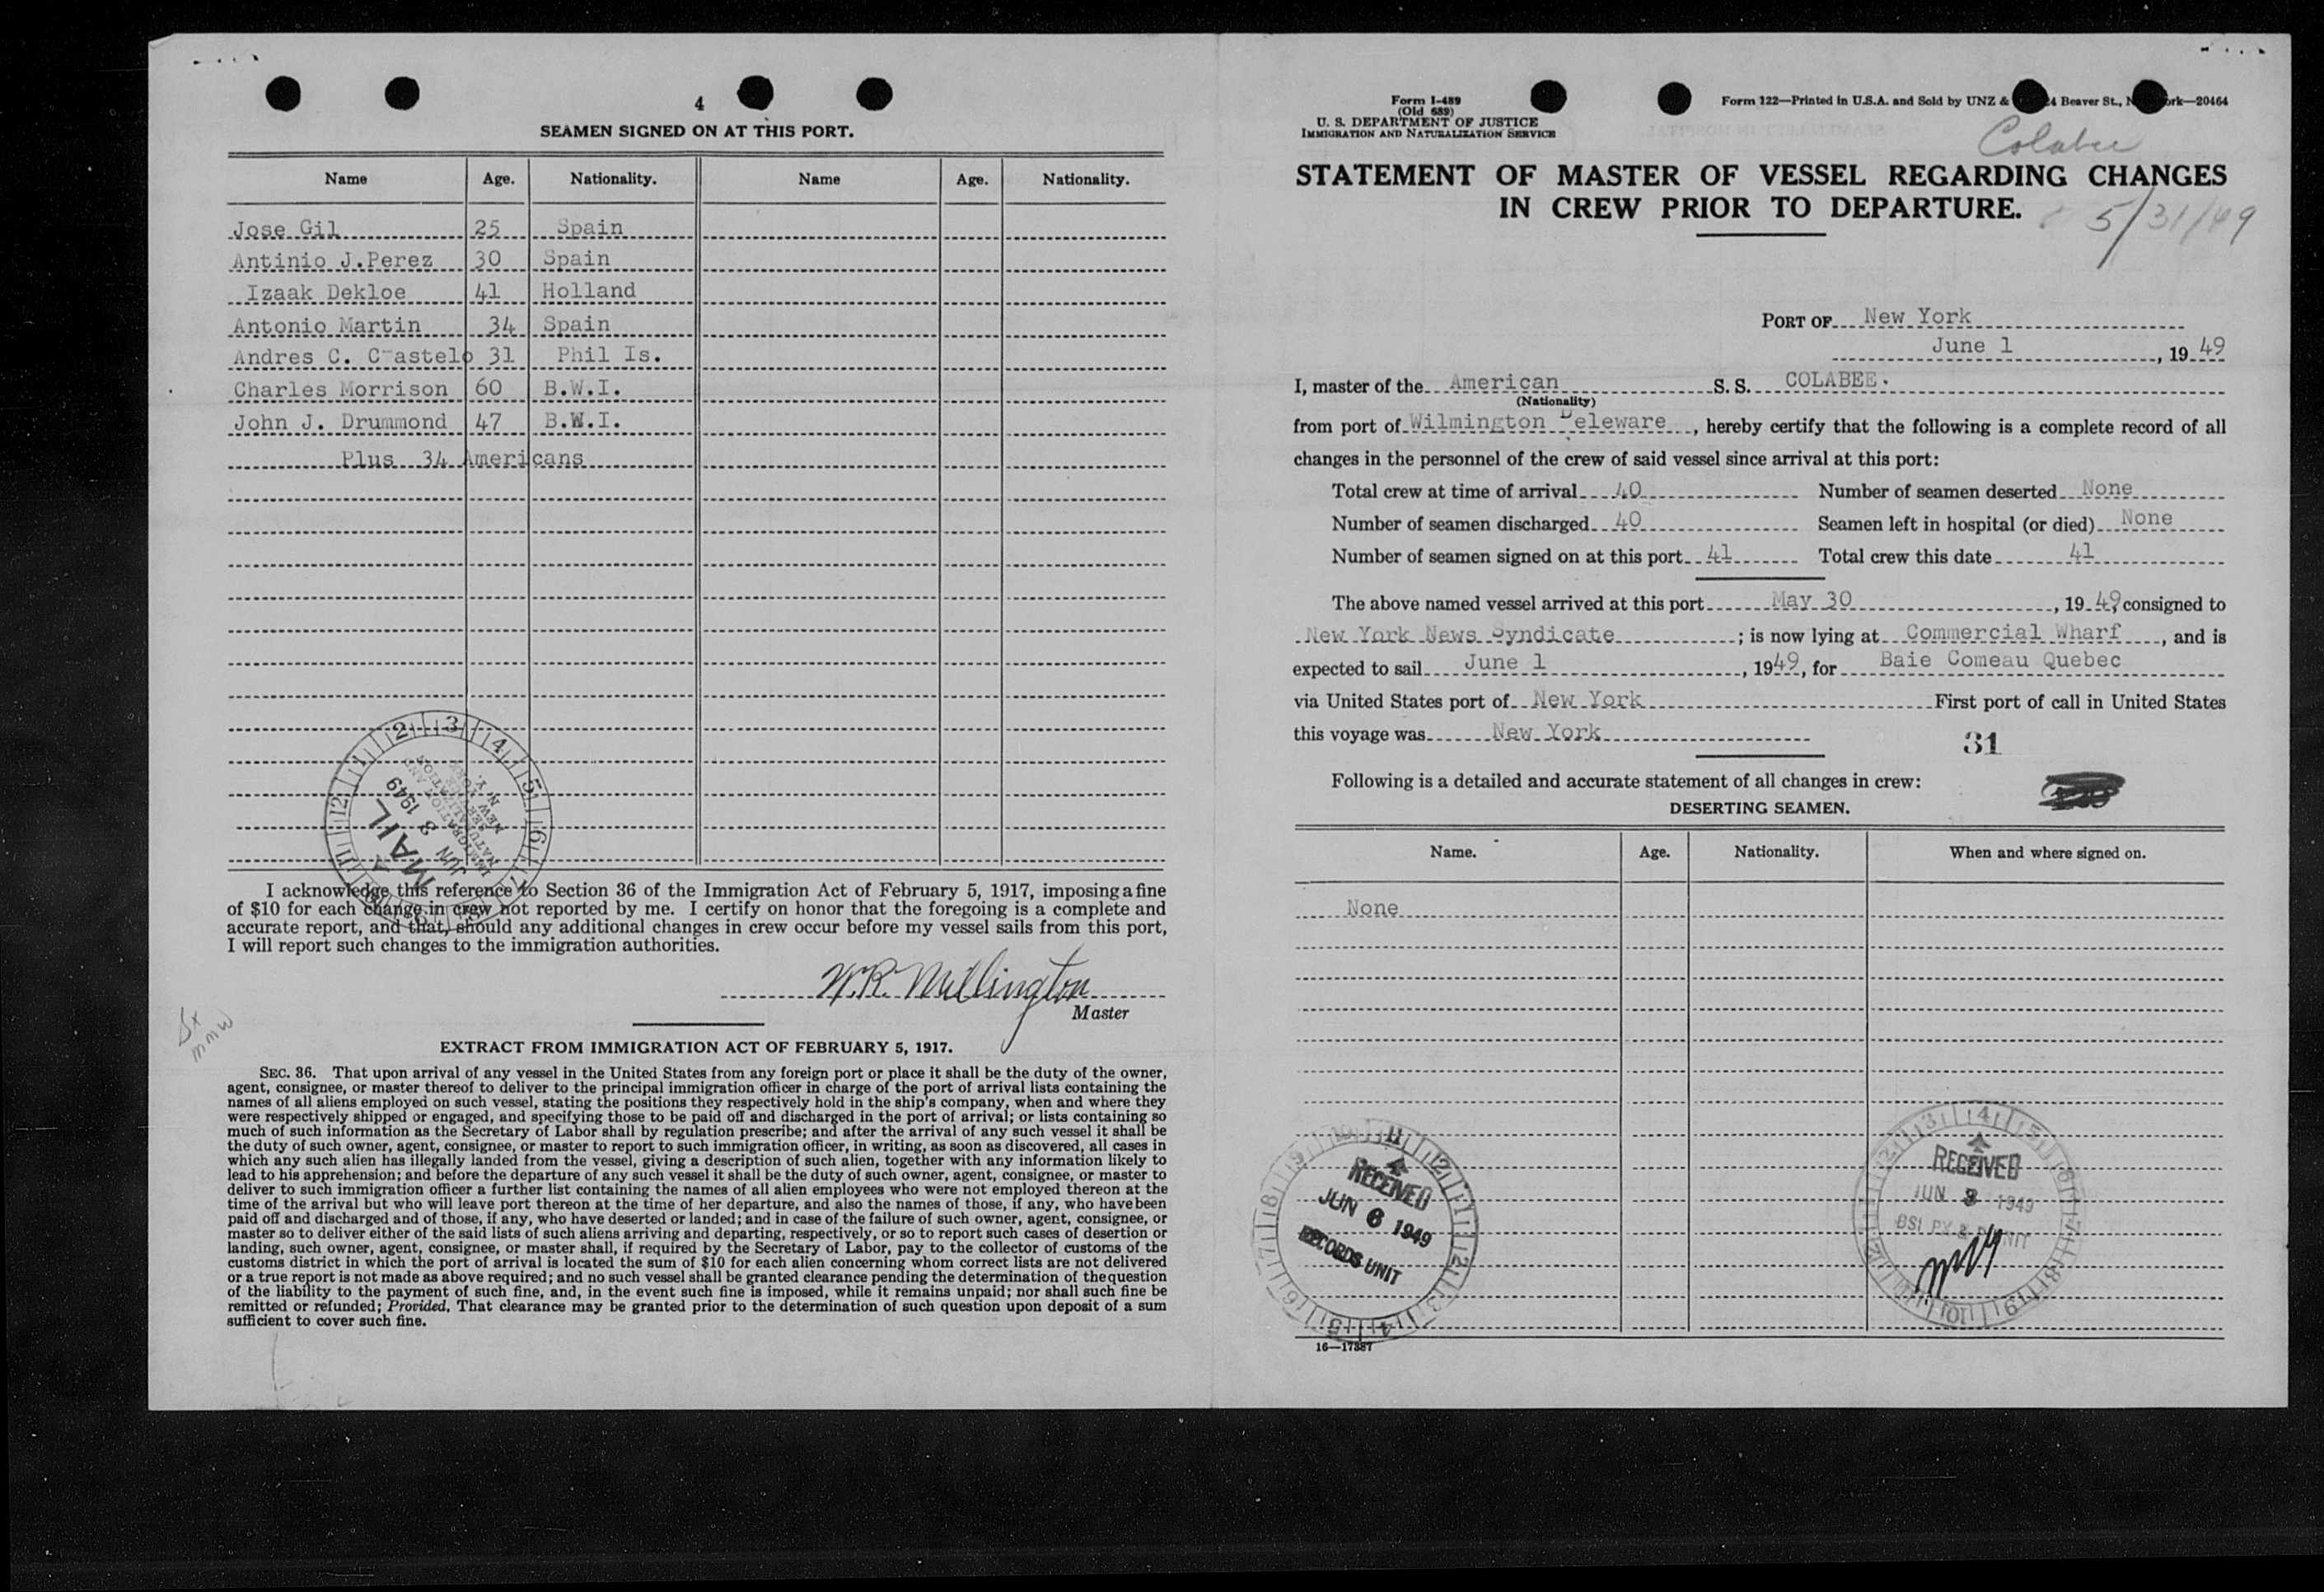 4
SEAMEN SIGNED ON AT THIS PORT.
Name Age. Nationality. Name Age. Nationality.
Jose Gil 25 Spain
Antinio J.Perez 30 Spain
Izaak Dekloe 41 Holland
Antonio Martin 34 Spain
Andres C. Castelo 31 Phil Is.
Charles Morrison 60 B.W.I.
John J. Drummond 47 B.W.I.
Plus 34 Americans
12 1 2 3 4 5 6
MAIL
JUN 3 1949
IMMIGRATION AND
NATURALIZATION
SERVICE
NEW YORK
N. Y.
I acknowledge this reference to Section 36 of the Immigration Act of February 5, 1917, imposing a fine
of $10 for each change in crew not reported by me. I certify on honor that the foregoing is a complete and
accurate report, and that, should any additional changes in crew occur before my vessel sails from this port,
I will report such changes to the immigration authorities.
W.R. Millington
Master
mmw
EXTRACT FROM IMMIGRATION ACT OF FEBRUARY 5, 1917.
SEC. 36. That upon arrival of any vessel in the United States from any foreign port or place it shall be the duty of the owner,
agent, consignee, or master thereof to deliver to the principal immigration officer in charge of the port of arrival lists containing the
names of all aliens employed on such vessel, stating the positions they respectively hold in the ship's company, when and where they
were respectively shipped or engaged, and specifying those to be paid off and discharged in the port of arrival; or lists containing so
much of such information as the Secretary of Labor shall by regulation prescribe; and after the arrival of any such vessel it shall be
the duty of such owner, agent, consignee, or master to report to such immigration officer, in writing, as soon as discovered, all cases in
which any such alien has illegally landed from the vessel, giving a description of such alien, together with any information likely to
lead to his apprehension; and before the departure of any such vessel it shall be the duty of such owner, agent, consignee, or master to
deliver to such immigration officer a further list containing the names of all alien employees who were not employed thereon at the
time of the arrival but who will leave port thereon at the time of her departure, and also the names of those, if any, who have been
paid off and discharged and of those, if any, who have deserted or landed; and in case of the failure of such owner, agent, consignee, or
master so to deliver either of the said lists of such aliens arriving and departing, respectively, or so to report such cases of desertion or
landing, such owner, agent, consignee, or master shall, if required by the Secretary of Labor, pay to the collector of customs of the
customs district in which the port of arrival is located the sum of $10 for each alien concerning whom correct lists are not delivered
or a true report is not made as above required; and no such vessel shall be granted clearance pending the determination of the question
of the liability to the payment of such fine, and, in the event such fine is imposed, while it remains unpaid; nor shall such fine be
remitted or refunded; Provided, That clearance may be granted prior to the determination of such question upon deposit of a sum
sufficient to cover such fine.
Form I-489
(Old 689)
U. S. DEPARTMENT OF JUSTICE
IMMIGRATION AND NATURALIZATION SERVICE
Form 122—Printed in U.S.A. and Sold by UNZ & 24 Beaver St., N ork—20464
Colabee
STATEMENT OF MASTER OF VESSEL REGARDING CHANGES
IN CREW PRIOR TO DEPARTURE.
5/31/49
PORT OF New York
June 1, 19 49
I, master of the American S. S. COLABEE.
(Nationality)
from port of Wilmington Deleware, hereby certify that the following is a complete record of all
changes in the personnel of the crew of said vessel since arrival at this port:
Total crew at time of arrival 40 Number of seamen deserted None
Number of seamen discharged 40 Seamen left in hospital (or died) None
Number of seamen signed on at this port 41 Total crew this date 41
The above named vessel arrived at this port May 30, 19 49, consigned to
New York News Syndicate; is now lying at Commercial Wharf, and is
expected to sail June 1, 1949, for Baie Comeau Quebec
via United States port of New York First port of call in United States
this voyage was New York
31
Following is a detailed and accurate statement of all changes in crew:
DESERTING SEAMEN.
Name. Age. Nationality. When and where signed on.
None
RECEIVED
JUN 6 1949
RECORDS UNIT
RECEIVED
JUN 3 1949
16—17387